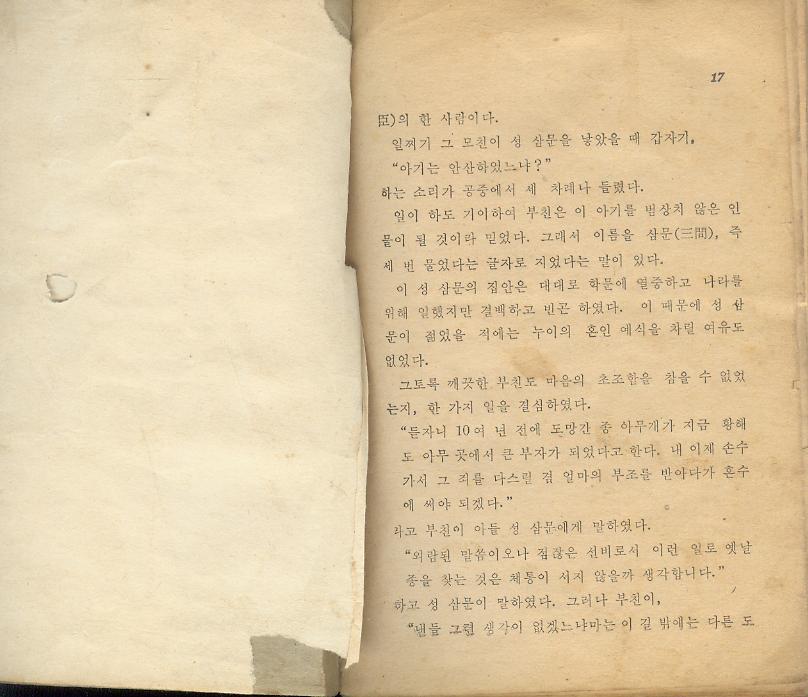 17
臣)의 한 사람이다.
일찌기 그 모친이 성 삼문을 낳았을 때 갑자기,
“아기는 안산하었느냐?”
하는 소리가 공중에서 세 차례나 들렸다.
일이 하도 기이하여 부친은 이 아기를 범상치 않은 인
물이 될 것이라 믿었다. 그래서 이름을 삼문(三問), 즉
세 번 물었다는 글자로 지었다는 말이 있다.
이 성 삼문의 집안은 대대로 학문에 열중하고 나라를
위해 일했지만 결백하고 빈곤 하였다. 이 때문에 성 삼
문이 젊었을 적에는 누이의 혼인 예식을 차릴 여유도
없었다.
그토록 깨끗한 부친도 마음의 초조함을 참을 수 없었
는지, 한 가지 일을 결심하였다.
“듣자니 10여 년 전에 도망간 종 아무개가 지금 황해
도 아무 곳에서 큰 부자가 되었다고 한다. 내 이제 손수
가서 그 죄를 다스릴 겸 얼마의 부조를 받아다가 혼수
에 써야 되겠다.”
라고 부친이 아들 성 삼문에게 말하였다.
“외람된 말씀이오나 점잖은 선비로서 이런 일로 옛날
종을 찾는 것은 체통이 서지 않을까 생각합니다.”
하고 성 삼문이 말하였다. 그러나 부친이,
“낸들 그런 생각이 없겠느냐마는 이 길 밖에는 다른 도